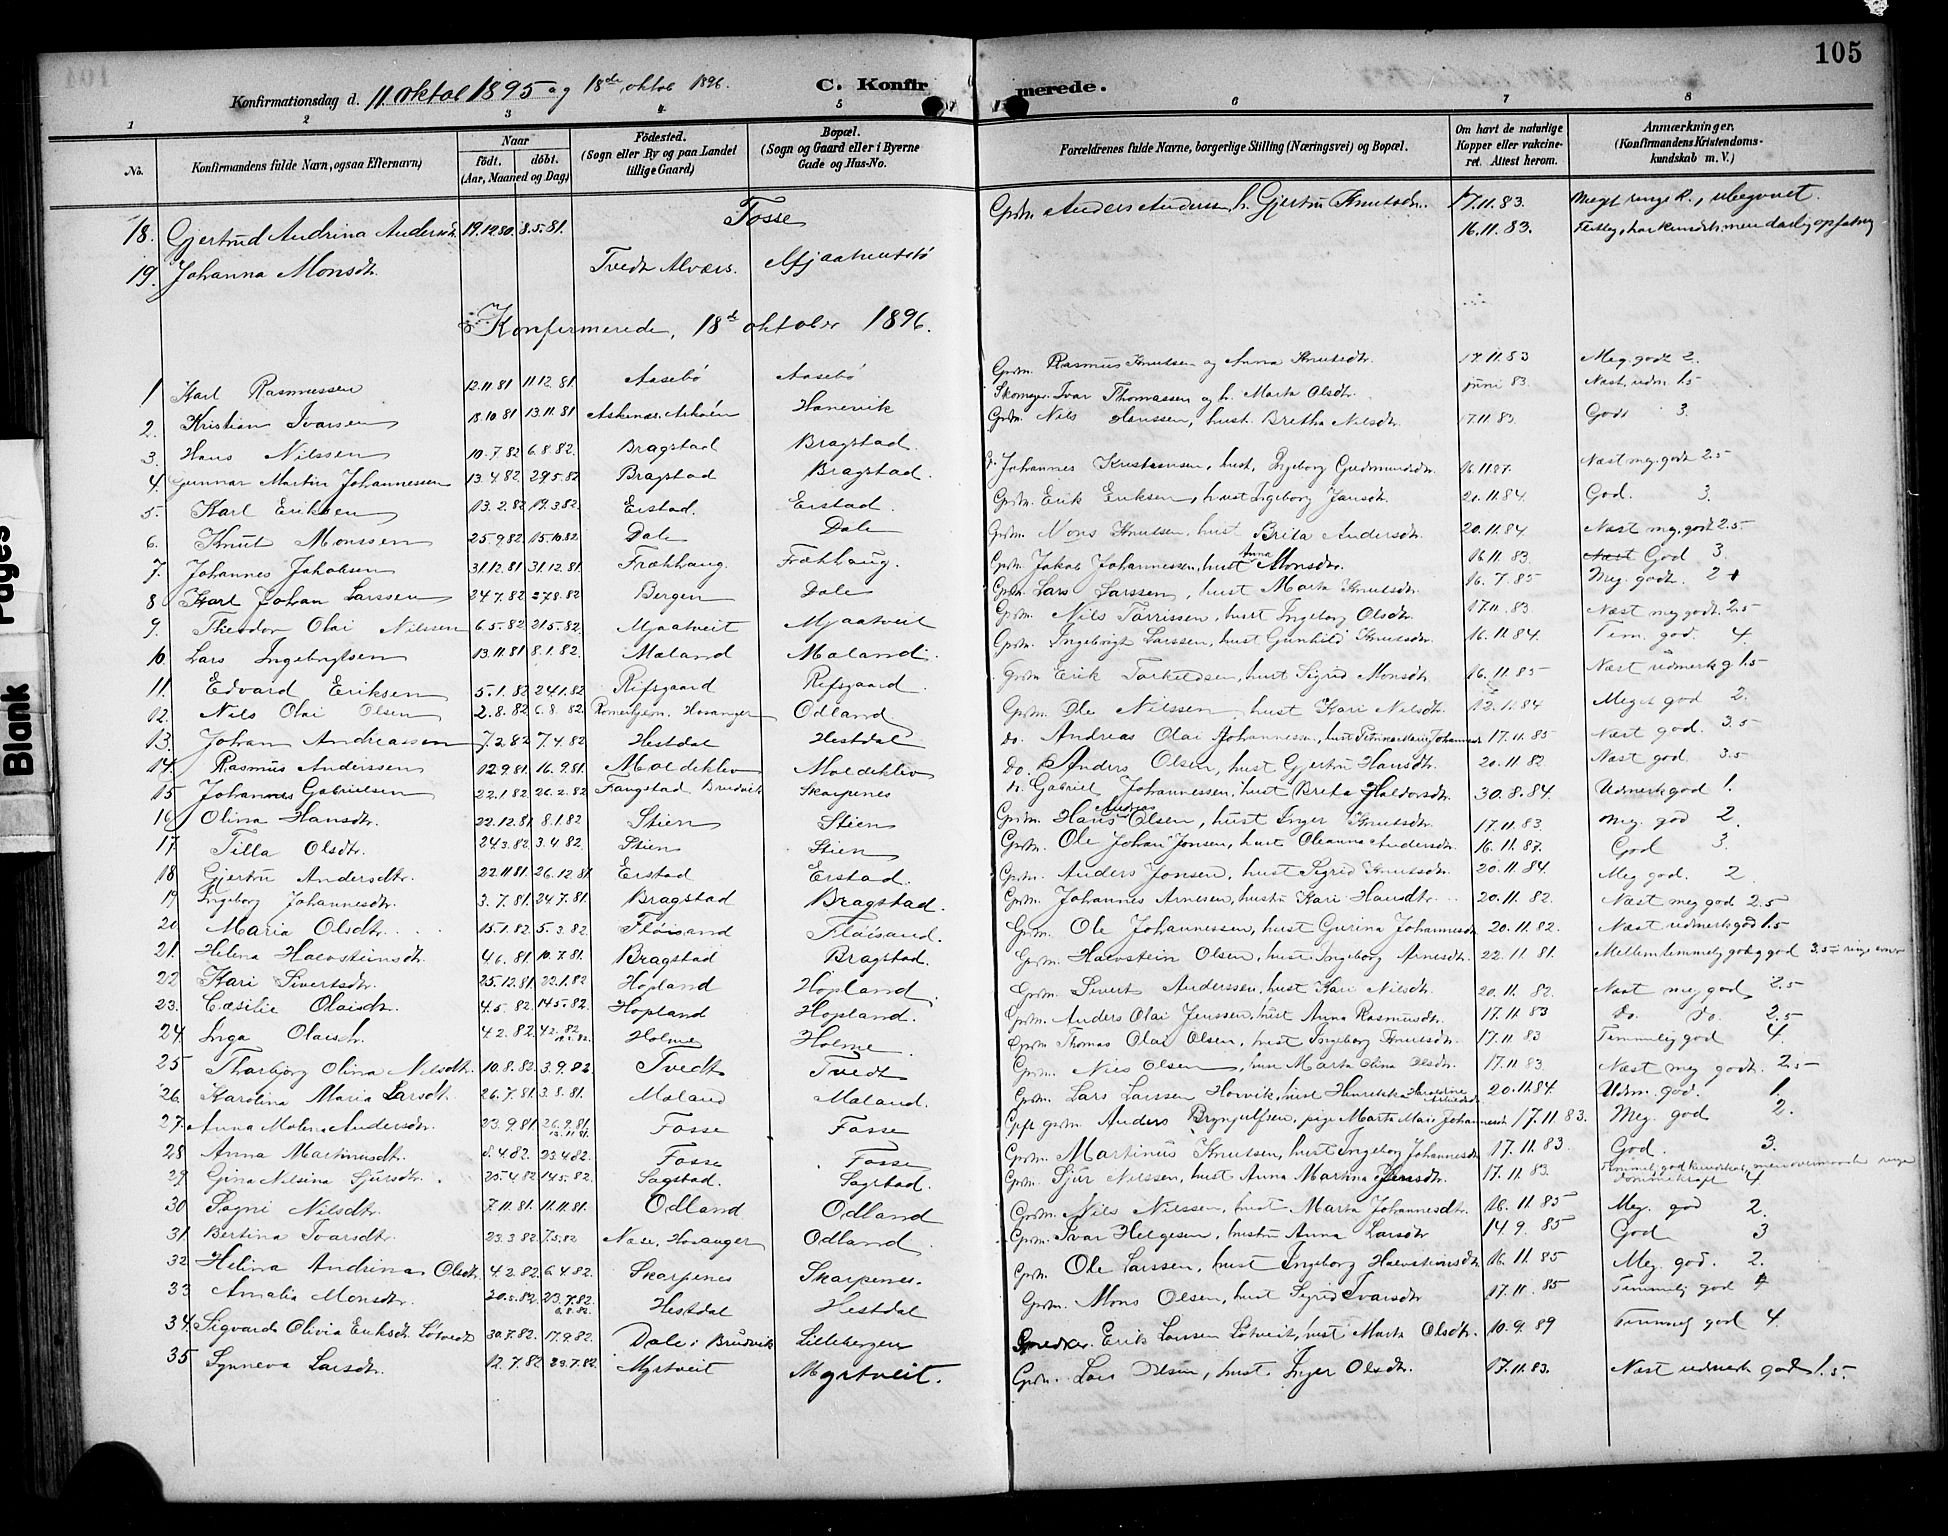 105
Konfirmationsdag d. 11 oktob 1895 og 18de oktob 1896. C. Konfirmerede.
1 2 3 4 5 6 7 8
No. Konfirmandens fulde Navn, ogsaa Efternavn) Naar født, døbt. (Aar, Maaned og Dag) Födested. (Sogn eller By og paa Landet tillige Gaard) Bopæl. (Sogn og Gaard eller i Byerne Gade og Hus-No. Forældrenes fulde Navne, borgerlige Stilling (Næringsvei) og Bopæl. Om havt de naturlige Kopper eller vaccineret. Attest herom. Anmærkninger. (Konfirmandens Kristendomskundskab m. V.)
18. Gjertrud Andrina Andersdt. 19.12.80. 8.5.81. Fosse Grdm. Anders Anderssen, h. Gjertru Knutsdtr. 17.11.83. Meget ringe k., ubegavet.
19. Johanna Monsdtr. Tvedt Alvers. Mjaatveitsbö 16.11.83.
Konfirmerede, 18de oktober 1896.
1 Karl Rasmussen 12.11.81 11.12.81. Aasebö Aasebö Grdm. Rasmus Knutsen og Anna Knutsdtr. 17.11.83 Meg. godt 2.
2. Kristian Ivarsen 18.10.81 13.11.81 Askenæs, Askøen Hanevik Skomager Ivar Thomassen og h. Marta Olsdtr. juni 83. Næst. udm. 1.5
3. Hans Nilssen 10.7.82 6.8.82. Bragstad Bragstad Grdm. Nils Hanssen, hust. Bretha Nilsdtr. 17.11.83. Godt 3.
4. Gunnar Martin Johannessen 13.4.82 29.5.82 Bragstad Bragstad. Johannes Kristiansen, hust. Ingeborg Gudmundsdtr. 16.11.87. Næst meg. godt 2.5
5. Karl Eriksen 13.2.82 19.3.82. Eistad. Eistad. Grdm. Erik Eriksen, hust Ingeborg Jansdtr. 20.11.84. God. 3.
6. Knut Monssen 25.9.82 15.10.82 Dale Dale Grdm. Mons Knutsen, hust Brita Andersdtr. 20.11.84 Næst meg. godt 2.5
7. Johannes Jakobsen 31.12.81 31.12.81 Frækhaug. Frækhaug. Grdm. Jakob Johannessen, hust Anna Monsdtr. 16.11.83 God 3.
8 Karl Johan Larssen 24.7.82 27.8.82. Bergen Dale Grdm. Lars Larssen, hust Marta Knutsdtr. 16.7.85 Meg. godt. 2
9. Theodor Olai Nilssen 6.5.82 21.5.82. Mjaatveit Mjaatveit Grdm. Nils Torrissen, hust Ingeborg Olsdtr. 17.11.83 Næst meg godt. 2.5
10. Lars Ingebrigtsen 13.11.81 8.1.82. Mæland Mæland. Grdm. Ingebrigt Larssen, hust Gunhild Knutsdtr. 16.11.84. Tem. god. 4
11. Edvard Eriksen 5.1.82 24.1.82 Rifsgaard Rifsgaard. Grdm Erik Torkeldsen, hust Sigrid Monsdtr. 16.11.85 Næst udmerk g 1.5
12. Nils Olai Olsen 2.8.82 6.8.82. Hosanger Odland Grdm. Ole Nilssen, hust Kari Nilsdtr. 12.11.84 Meget god 2.
13. Johan Andreassen 7.2.82 7.4.82 Hestdal Hestdal Do. Andreas Olai Johannessen, hust Johannesdt 17.11.85 Næst god. 3.5
14. Rasmus Anderssen 12.9.81. 16.9.81. Moldeklev Moldeklev Do. Anders Olsen, hust Gjertru Hansdtr. 20.11.82 Næst god 3.5
15 Johannes Gabrielsen 22.1.82 26.2.82 Bruvik Skarpenes Gabriel Johannessen, hust Breta Haldorsdtr. 30.8.84. Udmerk god 1.
16 Olina Hansdtr. 22.12.81 8.1.82 Stien Stien Grdm. Hans Andreas Olsen, hust Inger Knutsdtr. 17.11.83. Meg. god 2.
17. Tilla Olsdtr. 24.3.82 3.4.82. Stien Stien Grdm. Ole Johan Jonsen, hust Oleanna Andersdtr. 16.11.87. God 3.
18 Gjertru Andersdtr. 22.11.81 26.12.81 Eistad Eistad. Grdm. Anders Jonsen, hust Sigrid Knutsdtr. 20.11.84. Meg god. 2
19. Ingeborg Johannesdtr. 3.7.81. 24.7.81. Bragstad Bragstad. Grdm. Johannes Arnesen, hust Kari Hansdtr. 20.11.82 Næst meg god 2.5
20 Maria Olsdtr. 15.1.82 5.3.82 Flöisand Flöisand. Grdm. Ole Johannessen, hust Gurina Johannesdt 20.11.82. Næst udmerk god 1.5
21. Helena Halvsteinsdt. 4.6.81. 10.7.81. Bragstad Bragstad. Grdm. Halvstein Olsen, hust Ingeborg Arnesdtr 22.11.81. Mellem temmelig god og god 3.5
22 Kari Sivertsdtr. 25.12.81 22.1.82 Hopland Hopland. Grdm. Sivert Anderssen, hust Kari Nilsdtr. 20.11.82. Næst meg god 2.5
23. Cæsilie Olaisdtr. 4.5.82 14.5.82. Hopland Hopland. Grdm. Anders Olai Jenssen, hust Anna Rasmusdtr. 17.11.83 Do. Do. 2.5
24. Inga Olaisdt. 4.2.82 Holme Holme. Grdm. Thomas Olai Olsen, hust Ingeborg Knutsdtr. 17.11.83 Temmelig god 4.
25 Thorbjorg Olina Nilsdtr. 10.8.82 3.9.82 Tvedt Tvedt Grdm. Nils Olsen, hust Marta Olina Olsdtr. 17.11.83 Næst meg godt. 2.5
26. Karolina Maria Larsdt. 26.7.81 3.8.81. Moland Moland. Grdm. Lars Larssen Horvik, hust Henrikka 20.11.84. Udm. god. 1.
27. Anna Malena Andersdtr. 23.9.81 26.9.81 13.11.81. Fosse Fosse Gift grdm. Anders Brynjulfsen, pige Marta Mari Johannesdt 17.11.83. Meg. god 2.
28 Anna Martinusdt. 8.4.82. 23.4.82 Fosse Fosse Grdm. Martinus Knutsen, hust Ingeborg Johannesdt 17.11.83. God. 3.
29. Gina Nilsina Sjursdtr. 25.4.82 14.5.82. Sagstad. Sagstad. Grdm. Sjur Nilssen, hust Anna Martina Jensdtr. 17.11.83. Temmelig god kundskab, men overmaade ringe dömmekraft 4
30 Sogni Nilsdtr. 7.11.81. 11.11.81 Odland Odland Grdm. Nils Nilssen, hust Marta Johannesdtr. 16.11.85 Meg. god 2.
31. Bertina Ivarsdtr. 23.3.82 7.5.82 Næse, Hosanger Odland Grdm. Ivar Helgesen, hustru Anna Larsdtr 14.9.85 God 3
32 Helina Andrina Olsdtr. 4.2.82. 6.4.82. Skarpenes Skarpenes. Grdm. Ole Larssen, hust Ingeborg Halvsteinsdt 16.11.85 Meg. god. 2.
33 Amalia Monsdtr. 20.5.82 23.7.82. 6.8.82. Hestdal Hestdal Grdm. Mons Olsen, hust Sigrid Ivarsdtr 17.11.85 Temmelig god 4
34. Sigvarda Olivia Eriksdt. Lötveit 30.7.82. 17.9.82. Dale i Bruvik Lillebergen Snedker. Erik Larssen Lötveit, hust Marta Olsdtr. 10.9.89 Temmelig god 4.
35 Synneva Larsdtr. 12.7.82 23.7.82. Myrtveit Myrtveit. Grdm. Lars Olsen, hust. Inger Olsdtr. 17.11.83. Næst udmerk god 1.5.
Blank Pages